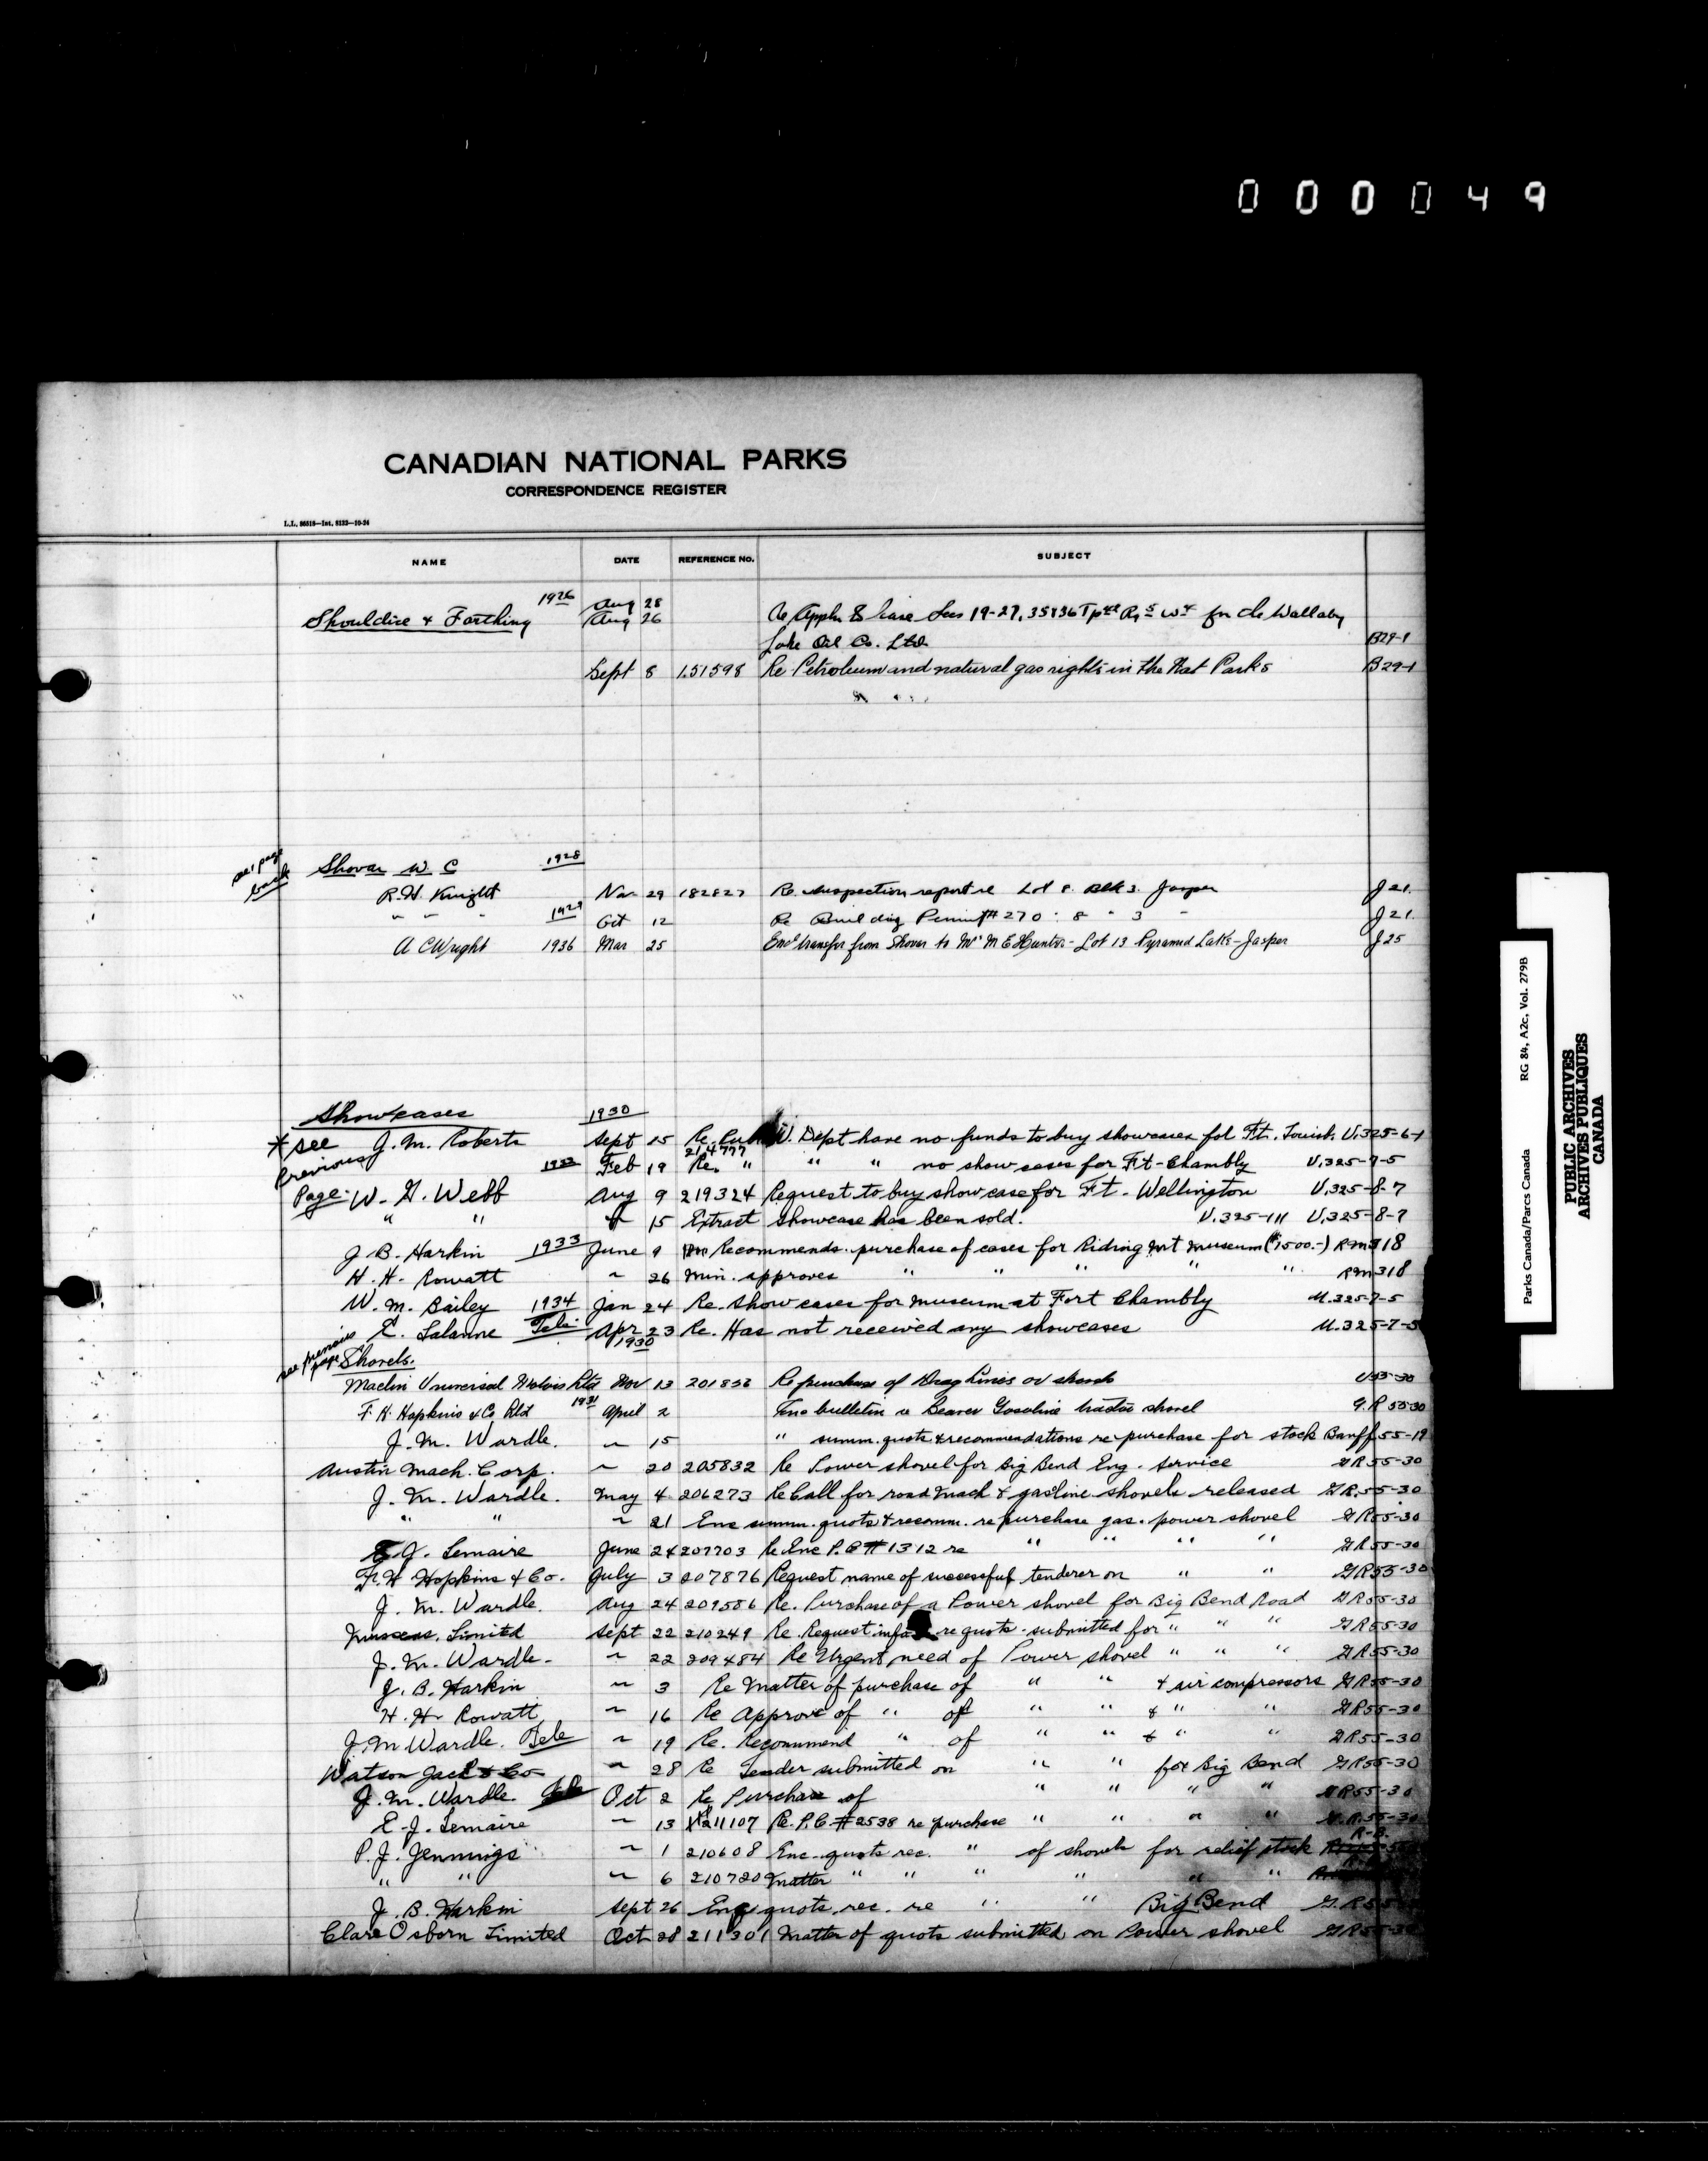 000049
CANADIAN NATIONAL PARKS
CORRESPONDENCE REGISTER
L.L. 86518—Int. 6122—10-24
NAME DATE REFERENCE No. SUBJECT
1926 Aug 28
Shouldice & Farthing Aug 26 Re Appln & lease Secs 19-27, 35 & 36 Tp Rg 5 W4 for the Wallaby
Lake Oil Co. Ltd. B29-1
Sept 8 151598 Re Petroleum and natural gas rights in the Nat Parks B29-1
see page back
Shovar W C 1928
R.H. Knight Nov 29 182827 Re inspection report re Lot 8 Blk 3 Jasper J21
" " " 1929 Oct 12 Re Building Permit # 270 : 8 " 3 " J21
A C Wright 1936 Mar 25 Encl transfer from Shovar to Mrs M E Hunter - Lot 13 Pyramid Lake - Jasper J25
Showcases 1930
* see previous page
J. M. Roberts Sept 15 Re. W. Dept have no funds to buy showcases for Ft. U.325-6-1
1932 Feb 19 214777 Re. " " " no show cases for Ft-Chambly U.325-7-5
W. G. Webb Aug 9 219324 Request to buy show case for Ft. Wellington U.325-8-7
" " " 15 Extract showcase has been sold. U.325-111 U.325-8-7
J B. Harkin 1933 June 9 Recommends purchase of cases for Riding Mt Museum ($1500.-) RM318
H. H. Rowatt " 26 Min. approves " " " " " RM318
W. M. Bailey 1934 Jan 24 Re. Show cases for museum at Fort Chambly U.325-7-5
E. Lalanne Tele. Apr 23 Re. Has not received any showcases U.325-7-5
see previous page
Shovels. 1930
Nov 13 Re purchase of Drag Lines or shovels U55-30
F. H. Hopkins & Co Ltd 1931 April 2 Enc bulletin re Bearer Gasoline tractor shovel G.R 55-30
J. M. Wardle. " 15 " summ. quots & recommendations re purchase for stock Banff 55-19
Austin Mach. Corp. " 20 205832 Re Power shovel for Big Bend Eng. Service GR55-30
J. M. Wardle. May 4 206273 Re Call for road mach & gasoline shovels released GR.55-30
" " " 21 Enc summ. quots & recomm. re purchase gas. power shovel GR55-30
E J. Lemaire June 24 207703 Re Enc P.C # 1312 re " " " " GR55-30
F. H Hopkins & Co. July 3 207876 Request name of successful tenderer on " " GR55-30
J. M. Wardle. Aug 24 209586 Re. Purchase of a Power shovel for Big Bend Road GR55-30
Mussens, Limited Sept 22 210249 Re. Request re quots. submitted for " " " GR55-30
J. M. Wardle. " 22 209484 Re Urgent need of Power shovel " " " GR55-30
J. B. Harkin " 3 Re Matter of purchase of " " & air compressors GR55-30
H. H. Rowatt " 16 Re Approve of " of " " & " " GR55-30
J. M Wardle. Tele " 19 Re. Recommend " of " " & " " GR55-30
Watson Jack & Co " 28 Re Tender submitted on " " for Big Bend GR55-30
J. M. Wardle. Tele Oct 2 Re Purchase of " " " " GR55-30
E. J. Lemaire " 13 211107 Re. P.C. # 2538 re purchase " " " " G.R.55-30
P. J. Jennings " 1 210608 Enc. quots rec. " of shovels for relief stock
" " " 6 210720 Matter " " " " " "
J. B. Harkin Sept 26 Enc quots. rec. re " " Big Bend G.R55
Clare Osborn Limited Oct 28 211301 Matter of quots submitted on Power shovel GR55-30
Parks Canada/Parcs Canada RG 84, A2c, Vol. 279B
PUBLIC ARCHIVES
ARCHIVES PUBLIQUES
CANADA